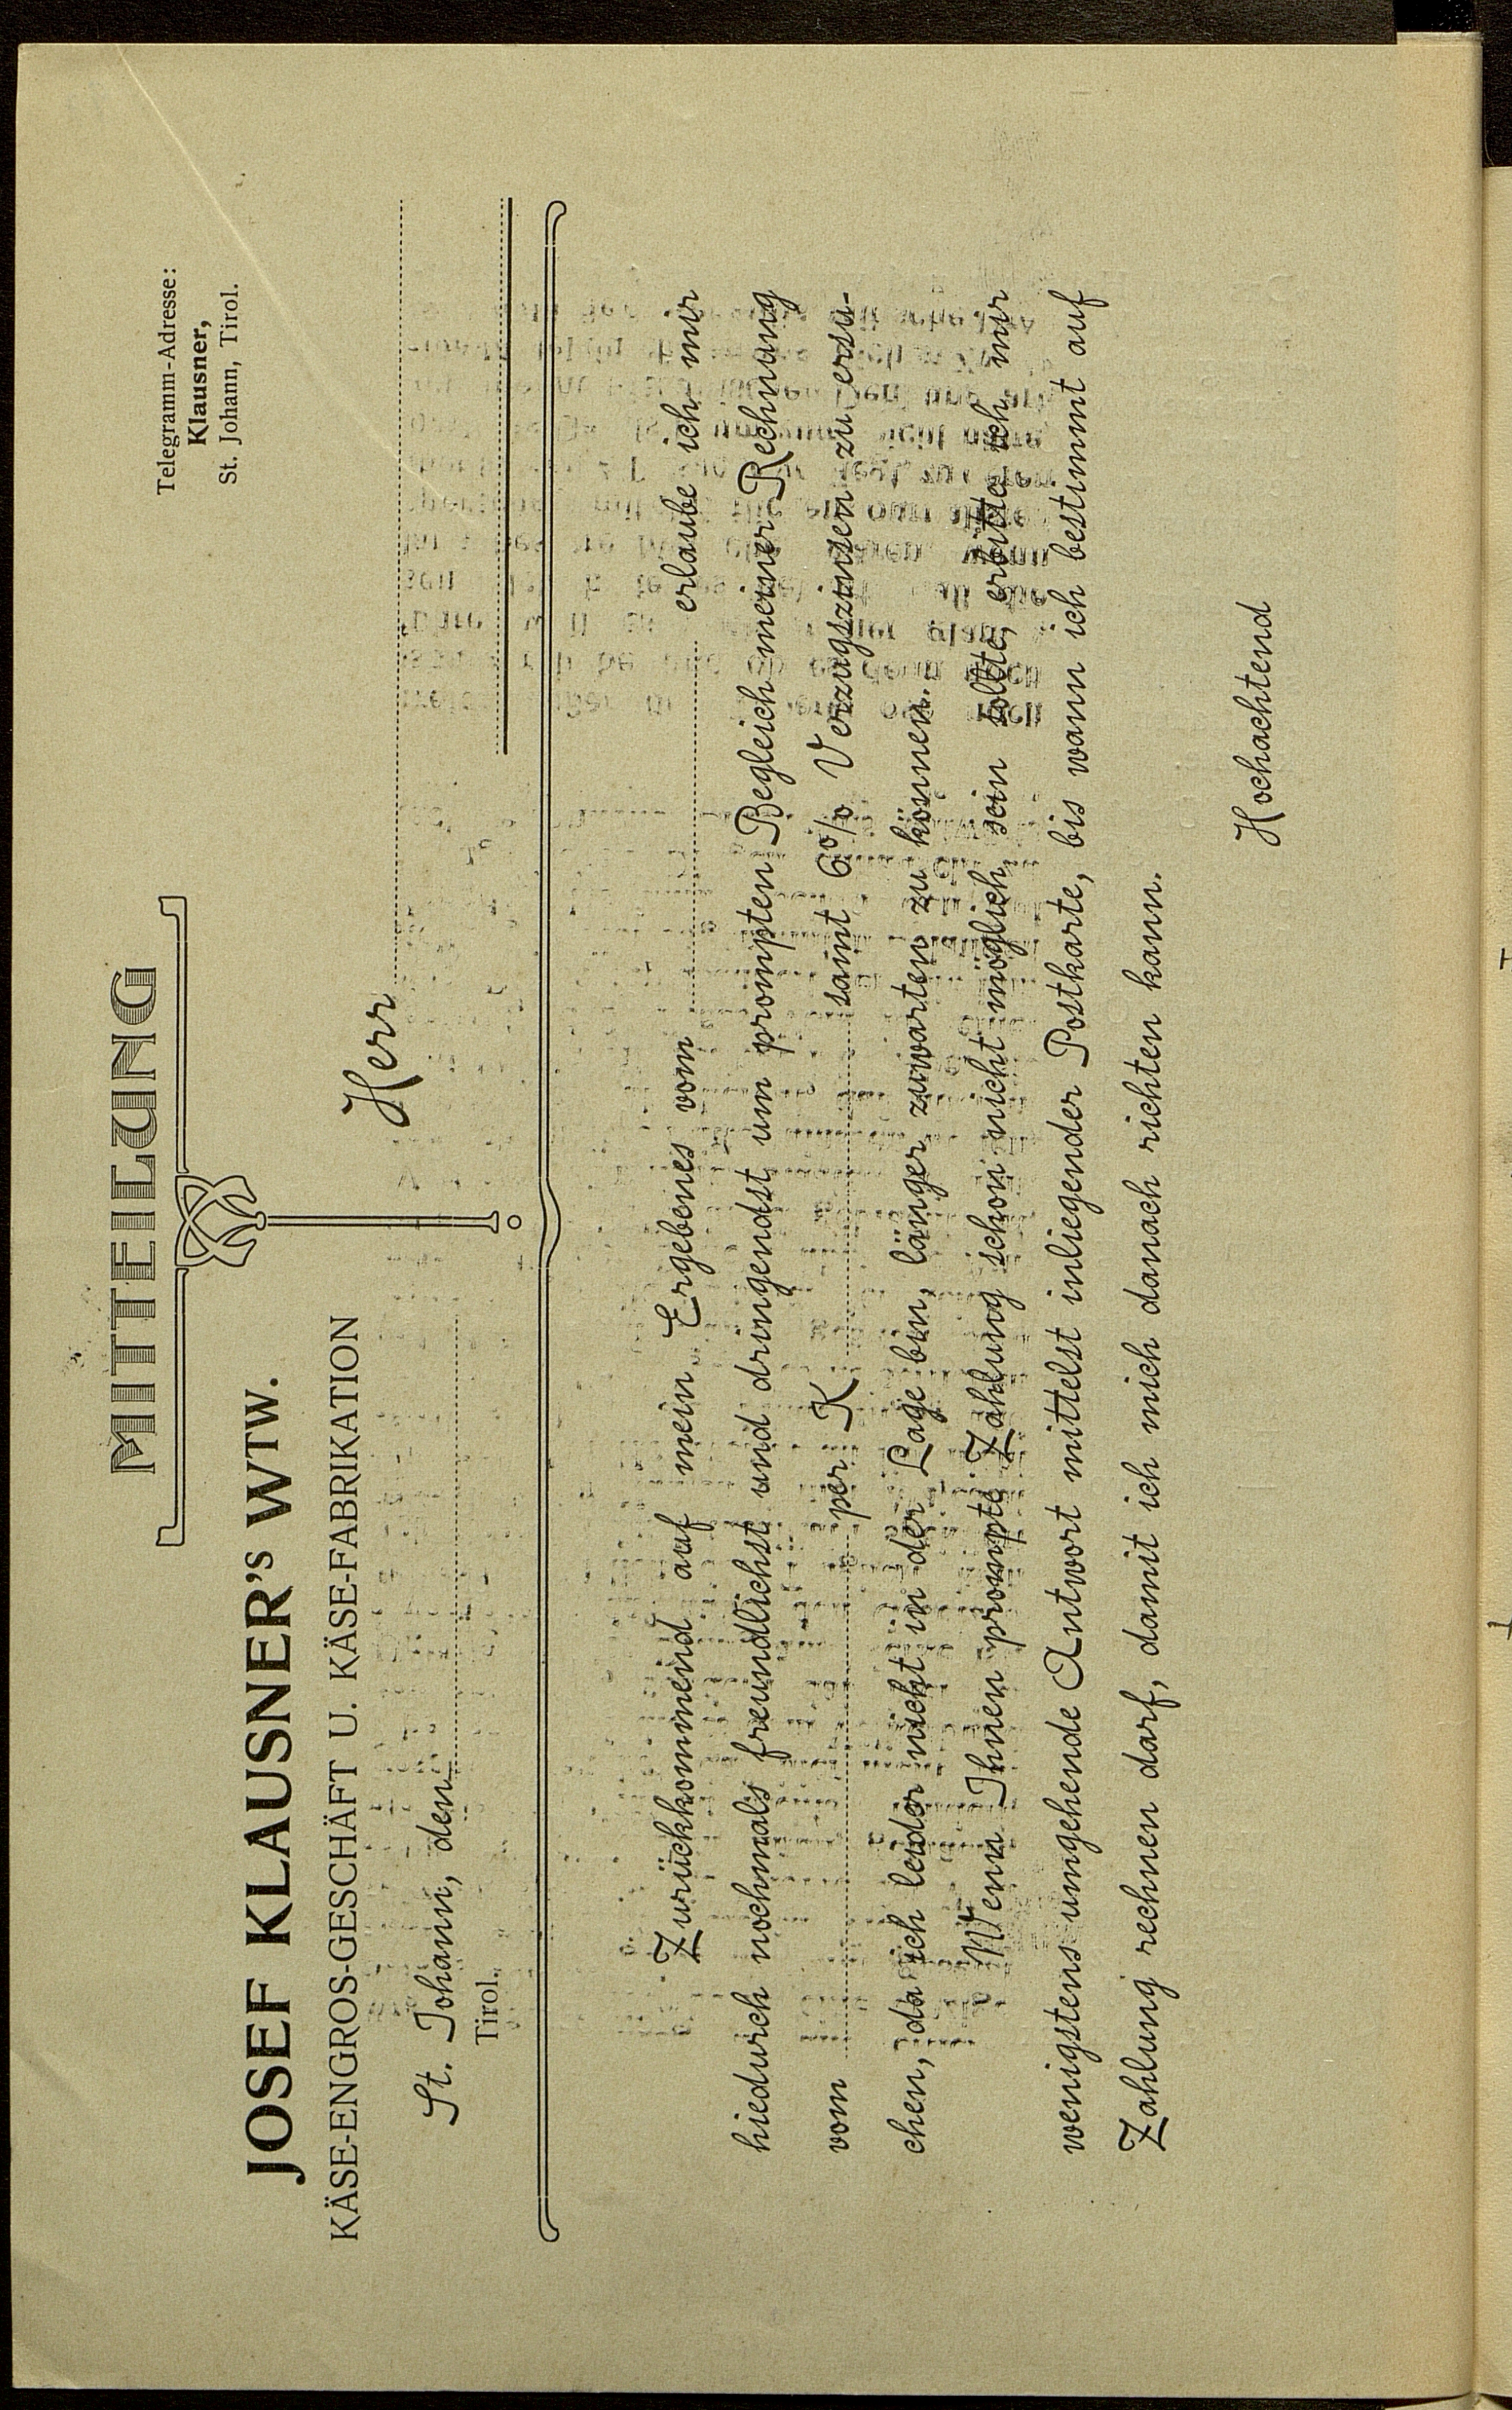 MITTEILUNG
Telegramm-Adresse:
Klausner,
St. Johann, Tirol.
JOSEF KLAUSNER's WTW.
KÄSE-ENGROS-GESCHÄFT U. KÄSE-FABRIKATION
Herr
St. Johann, den
Tirol.
Zurückkommend auf mein Ergebenes vom erlaube ich mir
hiedurch nochmals freundlichst und dringendst um prompten Begleich meiner Rechnung
vom per K samt 6% Verzugszinsen zu ersu-
chen, da ich leider nicht in der Lage bin, länger zuwarten zu können.
Wenn Ihnen prompte Zahlung schon nicht möglich sein sollte, erbitte ich mir
wenigstens umgehende Antwort mittelst inliegender Postkarte, bis wann ich bestimmt auf
Zahlung rechnen darf, damit ich mich danach richten kann.
Hochachtend